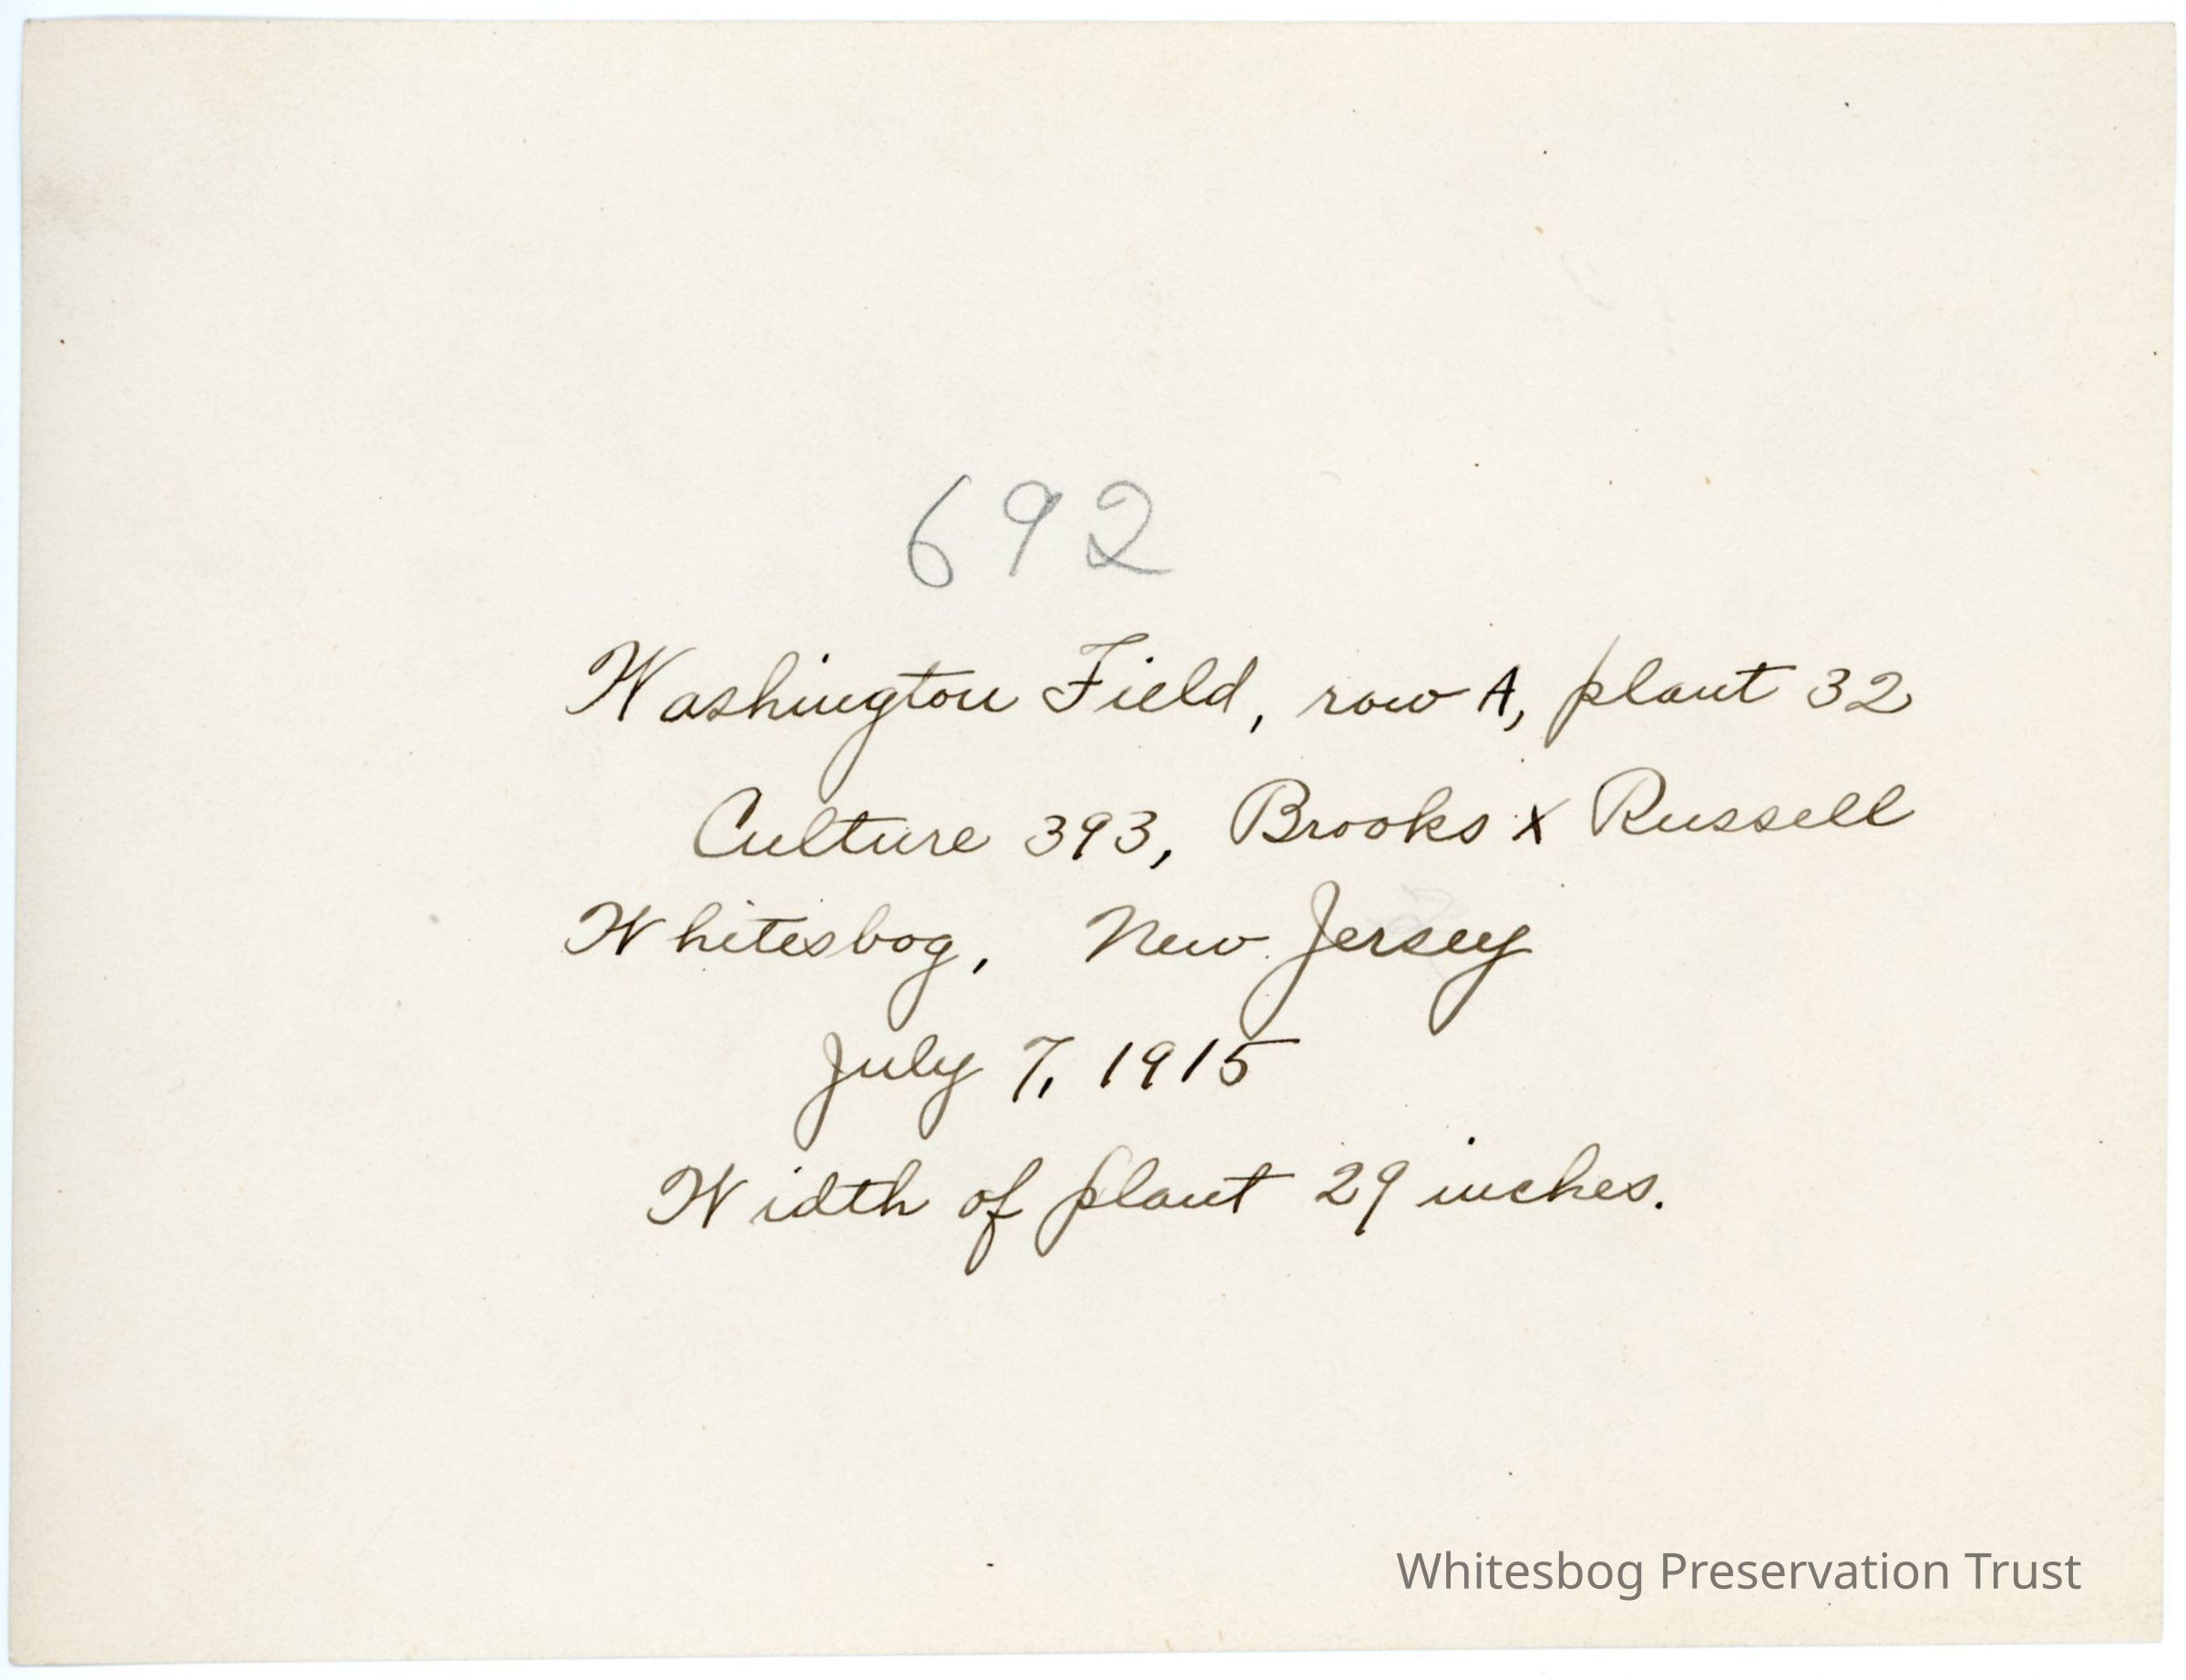 692
Washington Field, row A, plant 32
Culture 393, Brooks x Russell
Whitesbog, New Jersey
July 7, 1915
Width of plant 29 inches.
Whitesbog Preservation Trust